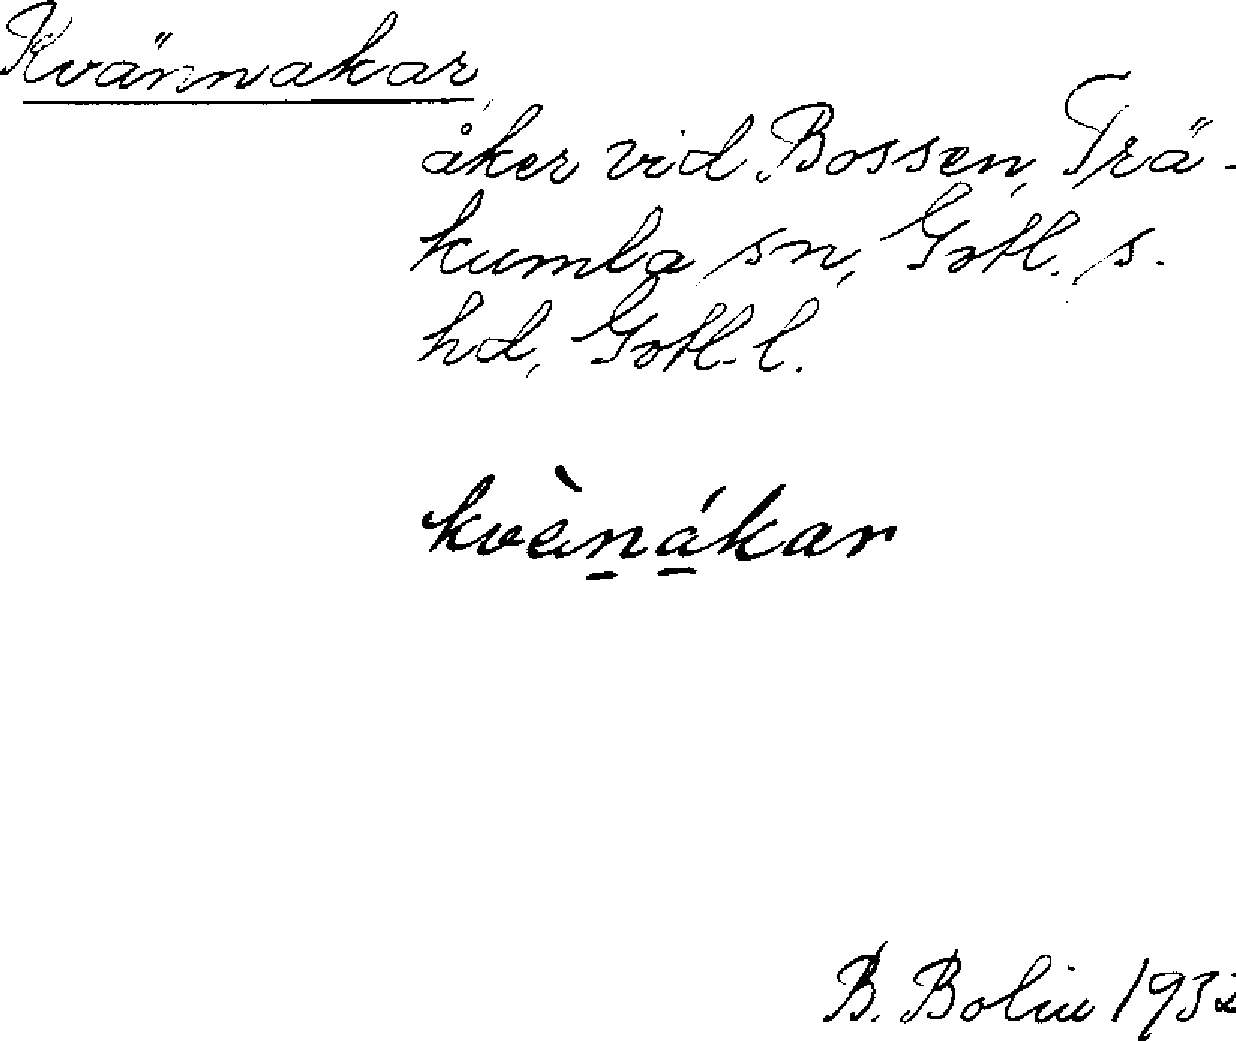 Kvännakar,
åker vid Bossen, Trä-
kumla sn, Gotl. s.
hd, Gotl. l.
kvä̀ṉá̱kar
B. Bolin 1932